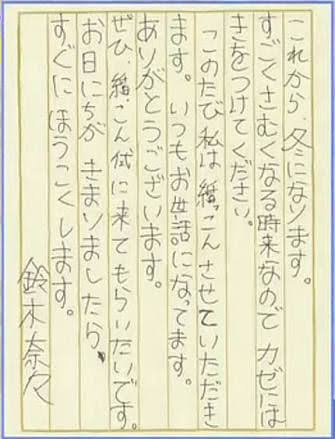 これから、冬になります。
すごくさむくなる時来なので カゼには
きをつけてください。
このたび私は結っこんさせていただき
ます。いつもお世話になってます。
ありがとうございます。
ぜひ、結こん式に来てもらいたいです。
お日にちが きまりましたら、
すぐに ほうこくします。
鈴木奈々